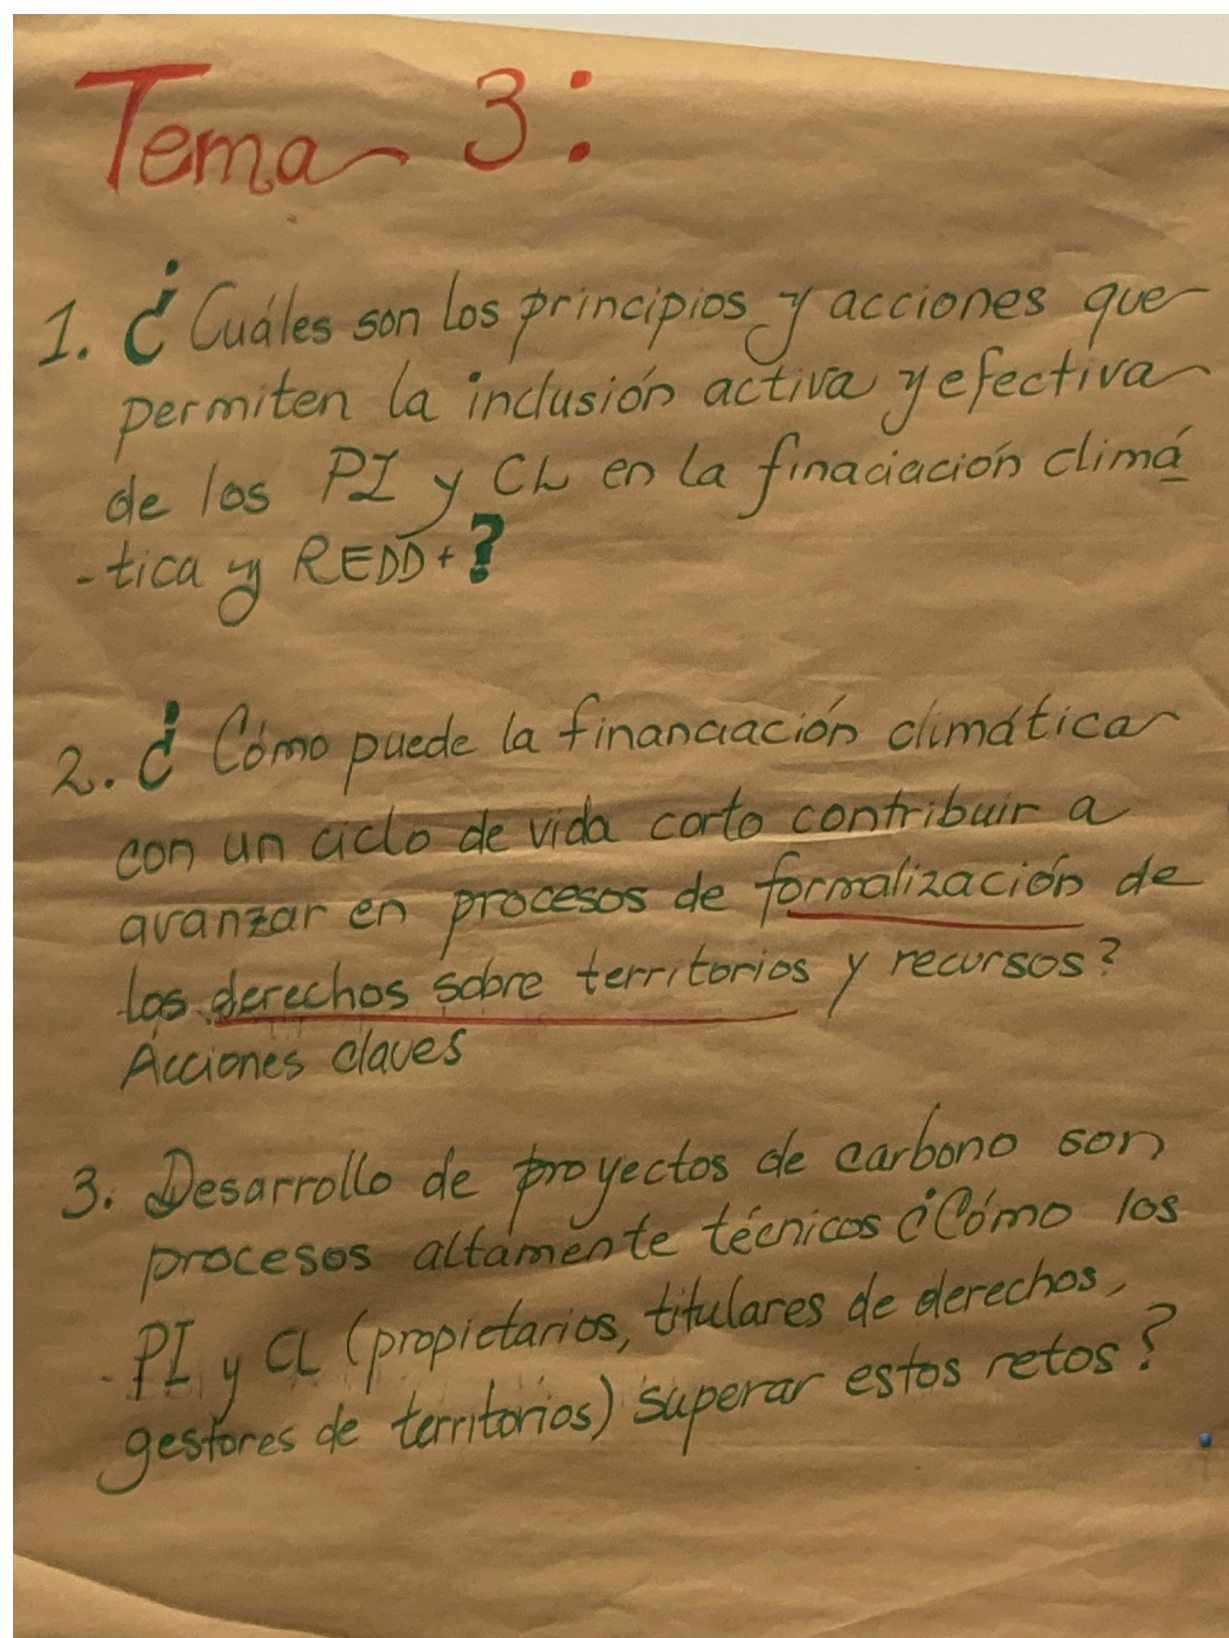 Tema 3:
1. ¿Cuáles son los principios y acciones que
permiten la inclusión activa y efectiva
de los PI y CL en la finaciación climá
-tica y REDD+?
2. ¿Cómo puede la financiación climática
con un ciclo de vida corto contribuir a
avanzar en procesos de formalización de
los derechos sobre territorios y recursos?
Acciones claves
3. Desarrollo de proyectos de carbono son
procesos altamente técnicos ¿Cómo los
PI y CL (propietarios, titulares de derechos,
gestores de territorios) superar estos retos?